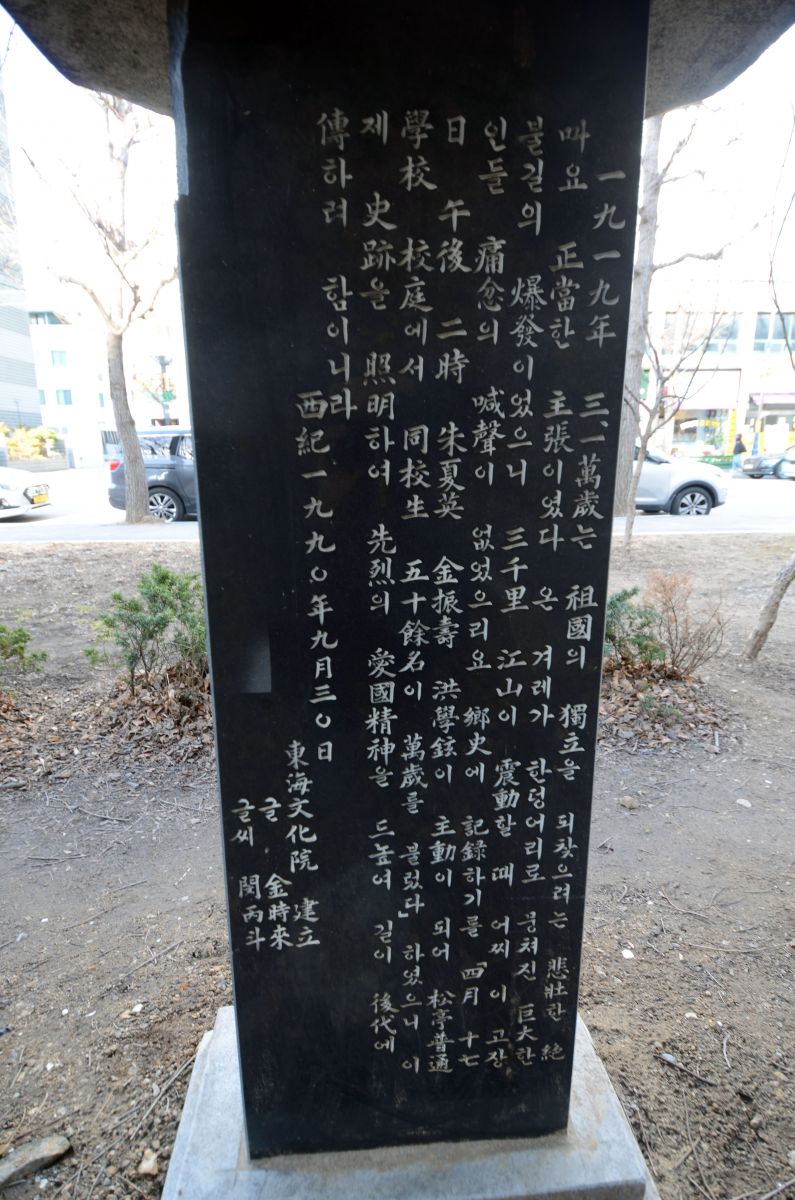 一九一九年 三.一萬歲는 祖國의 獨立을 되찾으려는 悲壯한 絶
叫요 正當한 主張이였다 온 겨레가 한덩어리로 뭉쳐진 巨大한
불길의 爆發이였으니 三千里 江山이 震動할 때 어찌 이 고장
인들 痛忿의 喊聲이 없었으리요 鄕史에 記錄하기를 「四月 十七
日 午後 二時 朱夏英 金振壽 洪學鉉이 主動이 되어 松亭普通
學校 校庭에서 同校生 五十餘名이 萬歲를 불렀다」 하였으니 이
제 史跡을 照明하여 先烈의 愛國精神을 드높여 길이 後代에
傳하려 함이니라
西紀一九九〇年九月三〇日
東海文化院 建立
글 金時來
글씨 閔丙斗